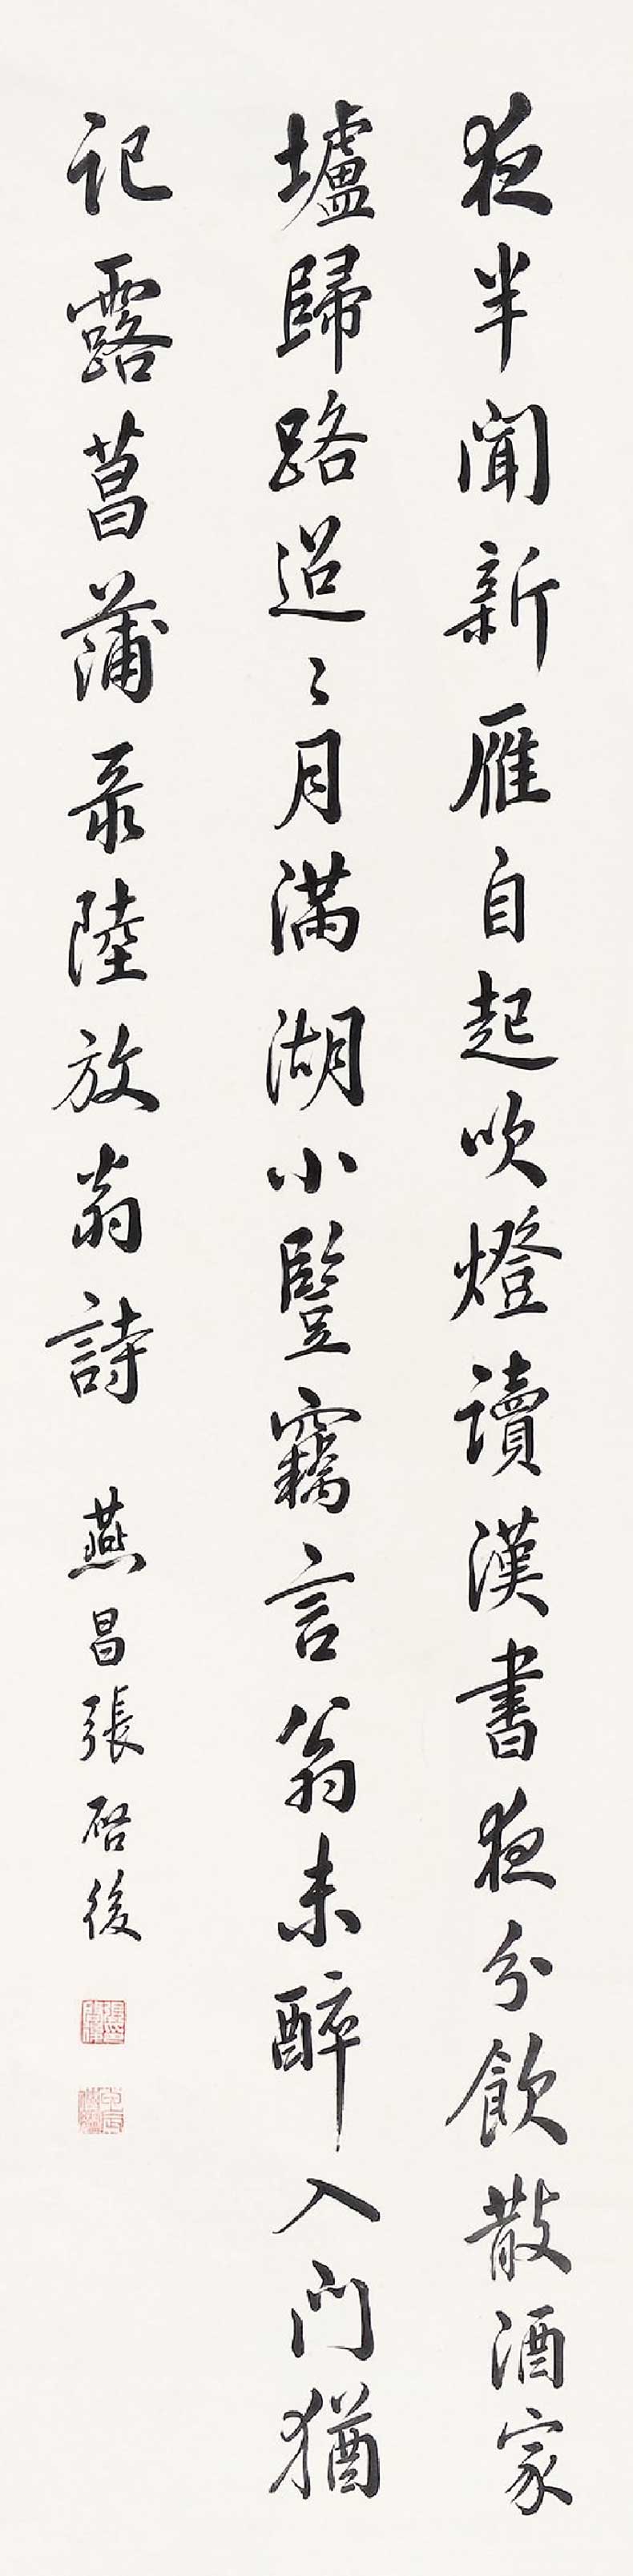 夜半聞新雁自起吹燈讀漢書夜分飲散酒家
壚歸路迢〻月滿湖小豎竊言翁未醉入門猶
記露菖蒲录陸放翁詩
燕昌張啓後